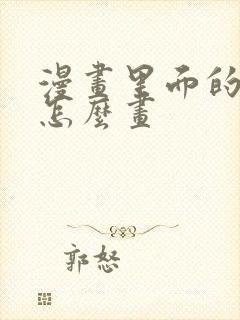 漫畫里而的
怎麼畫
郭怒